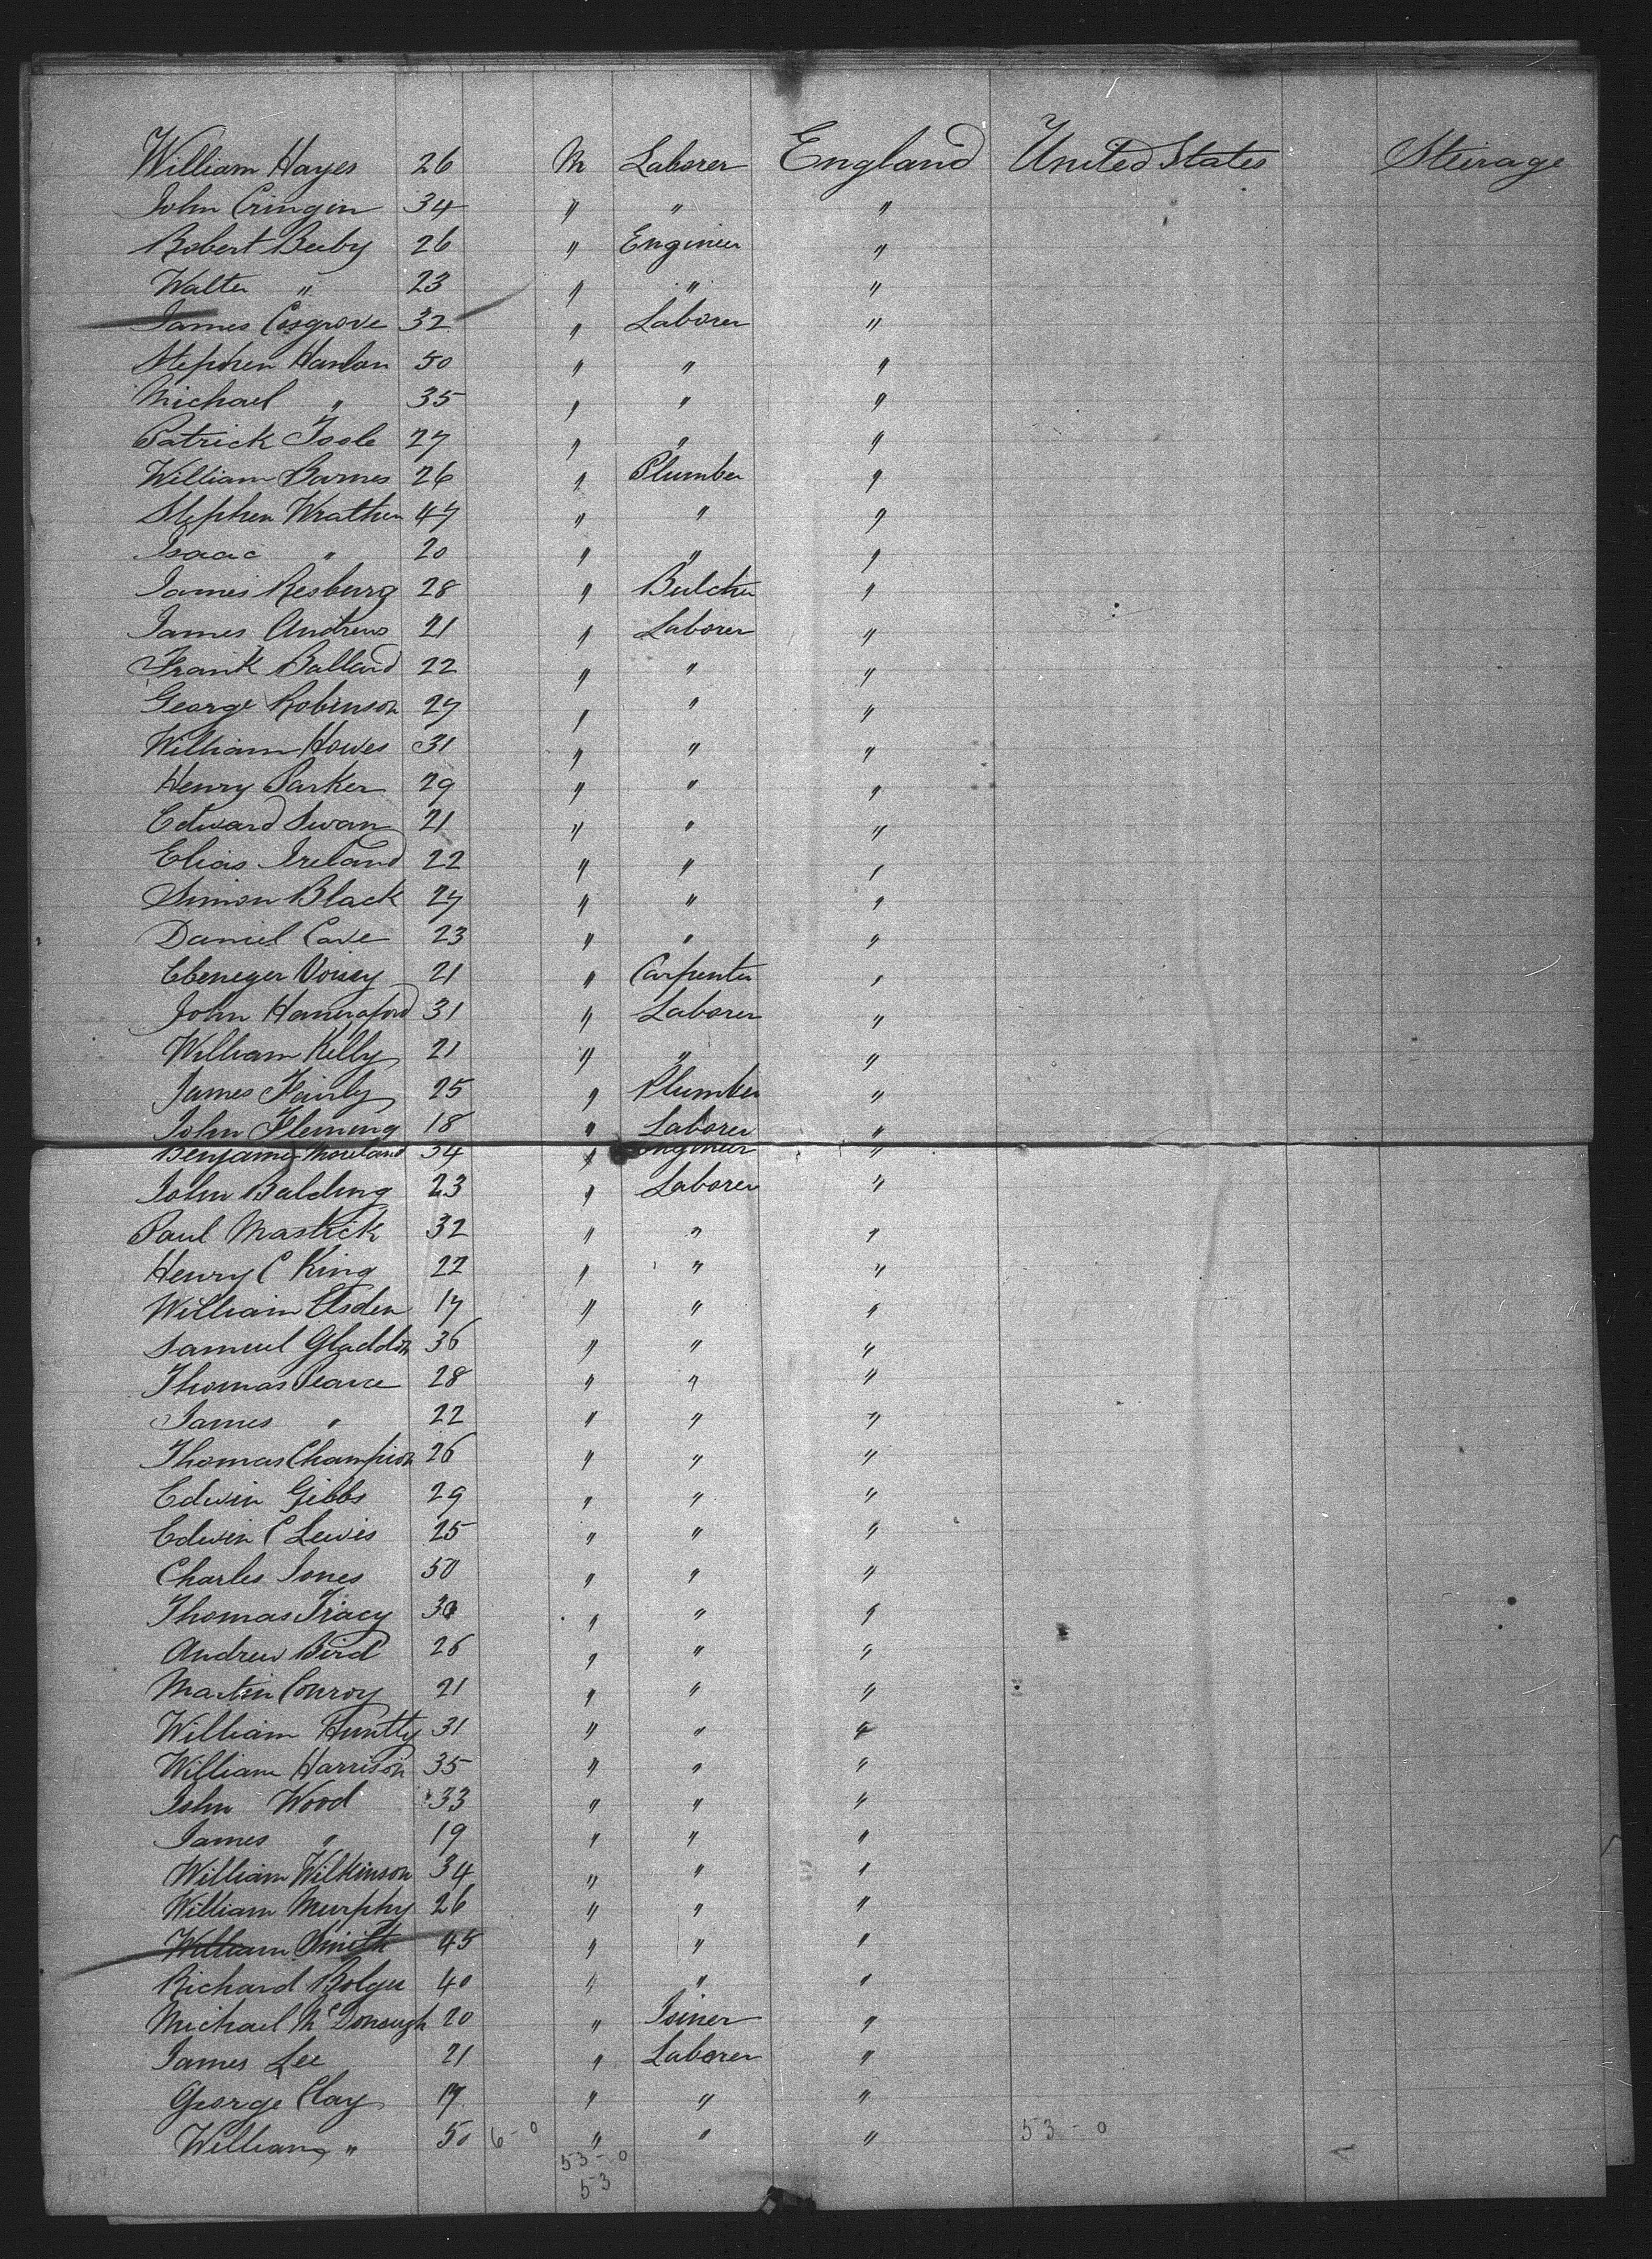 William Hayes 26 M Laborer England United States Steirage
John Cringin 34 " " "
Robert Beeby 26 " Engineer "
Walter " 23 " " "
James Cosgrove 32 " Laborer "
Stephen Hanlon 50 " " "
Michael " 35 " " "
Patrick Toole 27 " " "
William Barnes 26 " Plumber "
Stephen Wrathen 47 " " "
Isaac " 20 " " "
James Resburg 28 " Butcher "
James Andrews 21 " Laborer "
Frank Ballard 22 " " "
George Robinson 27 " " "
William Howes 31 " " "
Henry Parker 29 " " "
Edward Swan 21 " " "
Elias Ireland 22 " " "
Simon Black 27 " " "
Daniel Cave 23 " " "
Ebenezer Voisey 21 " Carpenter "
John 31 " Laborer "
William Kelly 21 " " "
James Fairly 25 " Plumber "
John Fleming 18 " Laborer "
Benjamin Moreland 34 " Engineer "
John Balding 23 " Laborer "
Paul Mastick 32 " " "
Henry C King 22 " " "
William Elsden 17 " " "
Samuel Gladdon 36 " " "
Thomas Pearce 28 " " "
James " 22 " " "
Thomas Champion 26 " " "
Edwin Gibbs 29 " " "
Edwin C Lewis 25 " " "
Charles Jones 50 " " "
Thomas Tracy 30 " " "
Andrew Bird 26 " " "
Martin Conroy 21 " " "
William Huntly 31 " " "
William Harrison 35 " " "
John Wood 33 " " "
James " 19 " " "
William Wilkinson 34 " " "
William Murphy 26 " " "
William Smith 45 " " "
Richard Bolger 40 " " "
Michael McDonough 20 " Joiner "
James Lee 21 " Laborer "
George Clay 17 " " "
William " 50 6-0 " " " 53-0
53-0
53